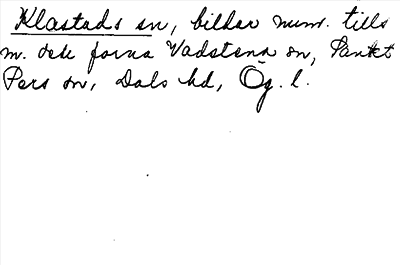 Klastads sn, bildar num. tills
m. del forna Vadstena sn, Sankt
Pers sn, Dals hd, Ög. l.